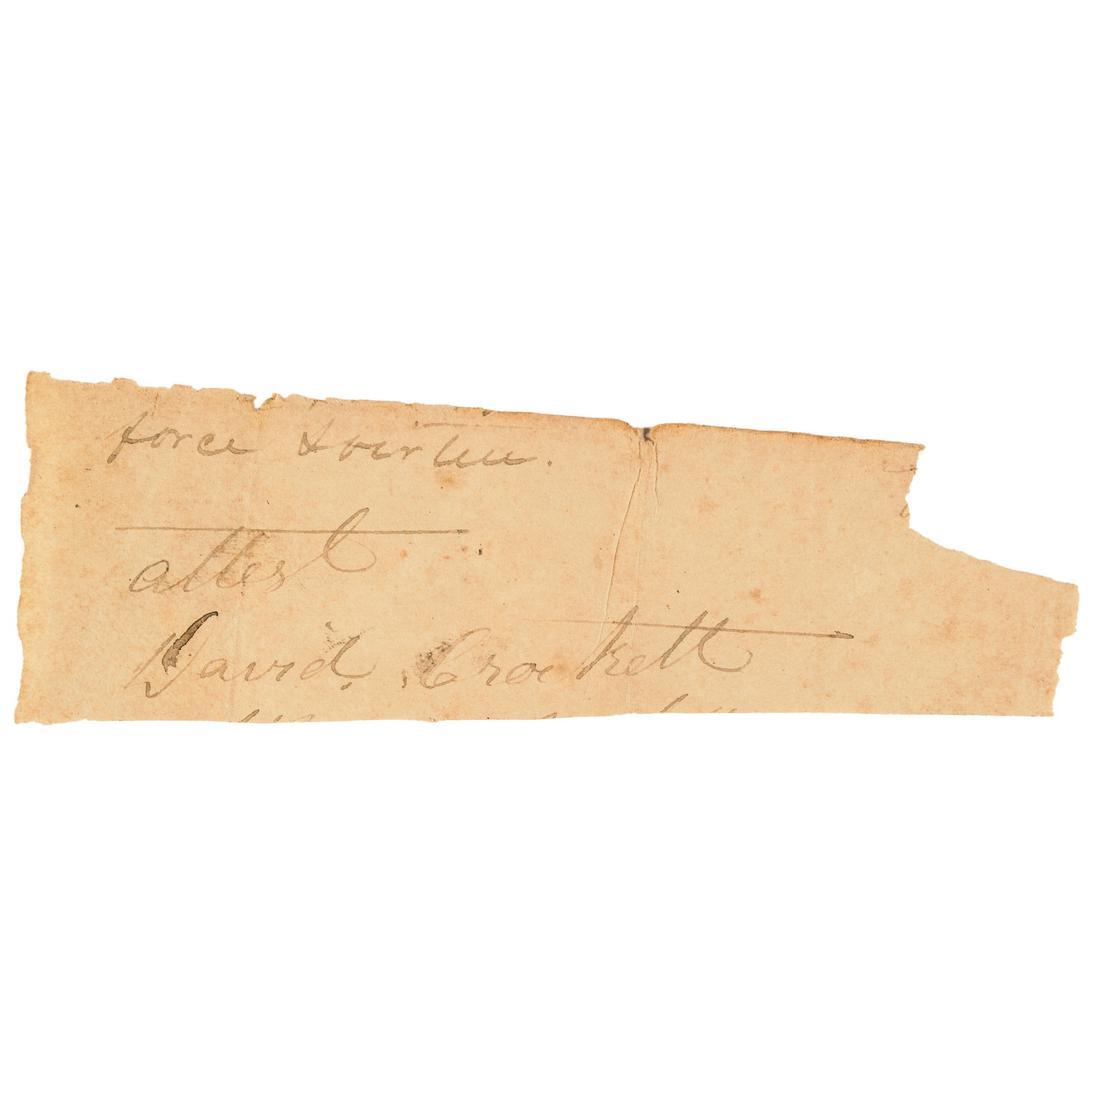 force & virtue.
attest
David Crockett